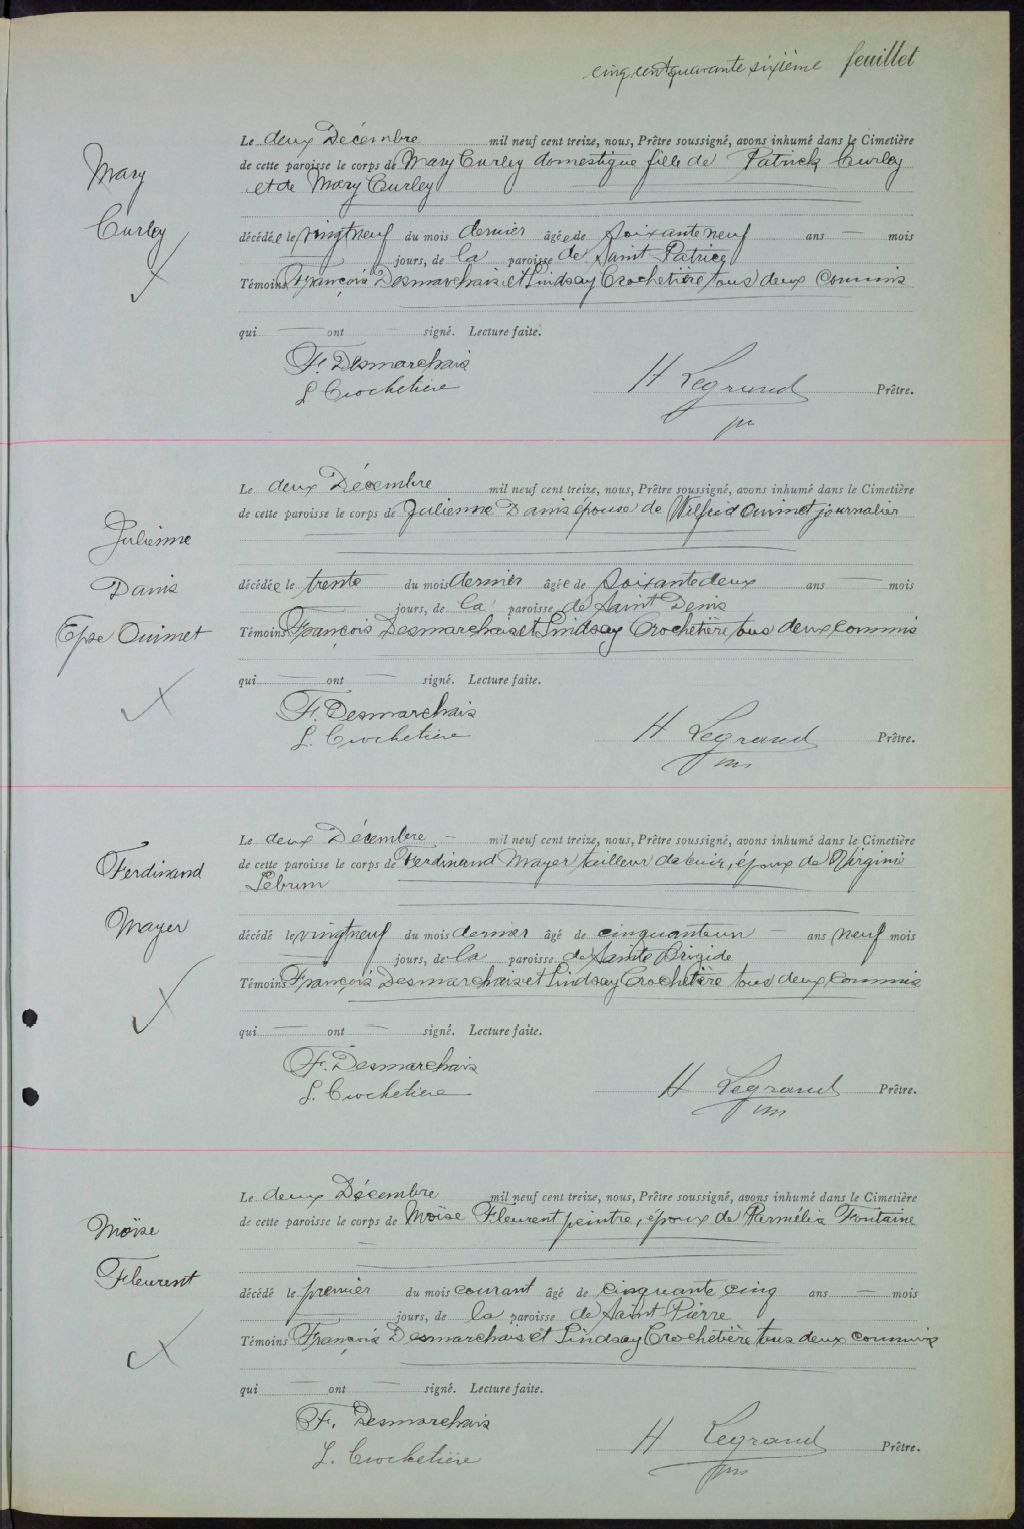 cinq cent quarante sixième feuillet
Mary
Curley
Le deux Décembre mil neuf cent treize, nous, Prêtre soussigné, avons inhumé dans le Cimetière
de cette paroisse le corps de Mary Curley domestique fille de Patrick Curley
et de Mary Curley
décédée le vingt neuf du mois dernier âgée de soixante neuf ans — mois
jours, de la paroisse de Saint Patrice
Témoins François Desmarchais et Lindsay Crochetière tous deux commis
qui — ont — signé. Lecture faite.
F. Desmarchais
L. Crochetière
H Legrand Prêtre.
Julienne
Danis
Epse Ouimet
Le deux Décembre mil neuf cent treize, nous, Prêtre soussigné, avons inhumé dans le Cimetière
de cette paroisse le corps de Julienne Danis épouse de Wilfrid Ouimet journalier
décédée le trente du mois dernier âgée de soixante deux ans — mois
jours, de la paroisse de Saint Denis
Témoins François Desmarchais et Lindsay Crochetière tous deux commis
qui — ont — signé. Lecture faite.
F. Desmarchais
L. Crochetière
H Legrand Prêtre.
Ferdinand
Mayer
Le deux Décembre — mil neuf cent treize, nous, Prêtre soussigné, avons inhumé dans le Cimetière
de cette paroisse le corps de Ferdinand Mayer tailleur de cuir, époux de Virginie
Lebrun
décédé le vingt neuf du mois dernier âgé de cinquante un — ans neuf mois
— jours, de la paroisse de Sainte Brigide
Témoins François Desmarchais et Lindsay Crochetière tous deux commis
qui — ont — signé. Lecture faite.
F. Desmarchais
L. Crochetière
H Legrand Prêtre.
Moïse
Fleurent
Le deux Décembre mil neuf cent treize, nous, Prêtre soussigné, avons inhumé dans le Cimetière
de cette paroisse le corps de Moïse Fleurent peintre, époux de Permélia Fontaine
décédé le premier du mois courant âgé de cinquante cinq ans — mois
jours, de la paroisse de Saint Pierre
Témoins François Desmarchais et Lindsay Crochetière tous deux commis
qui — ont — signé. Lecture faite.
F. Desmarchais
L. Crochetière
H Legrand Prêtre.